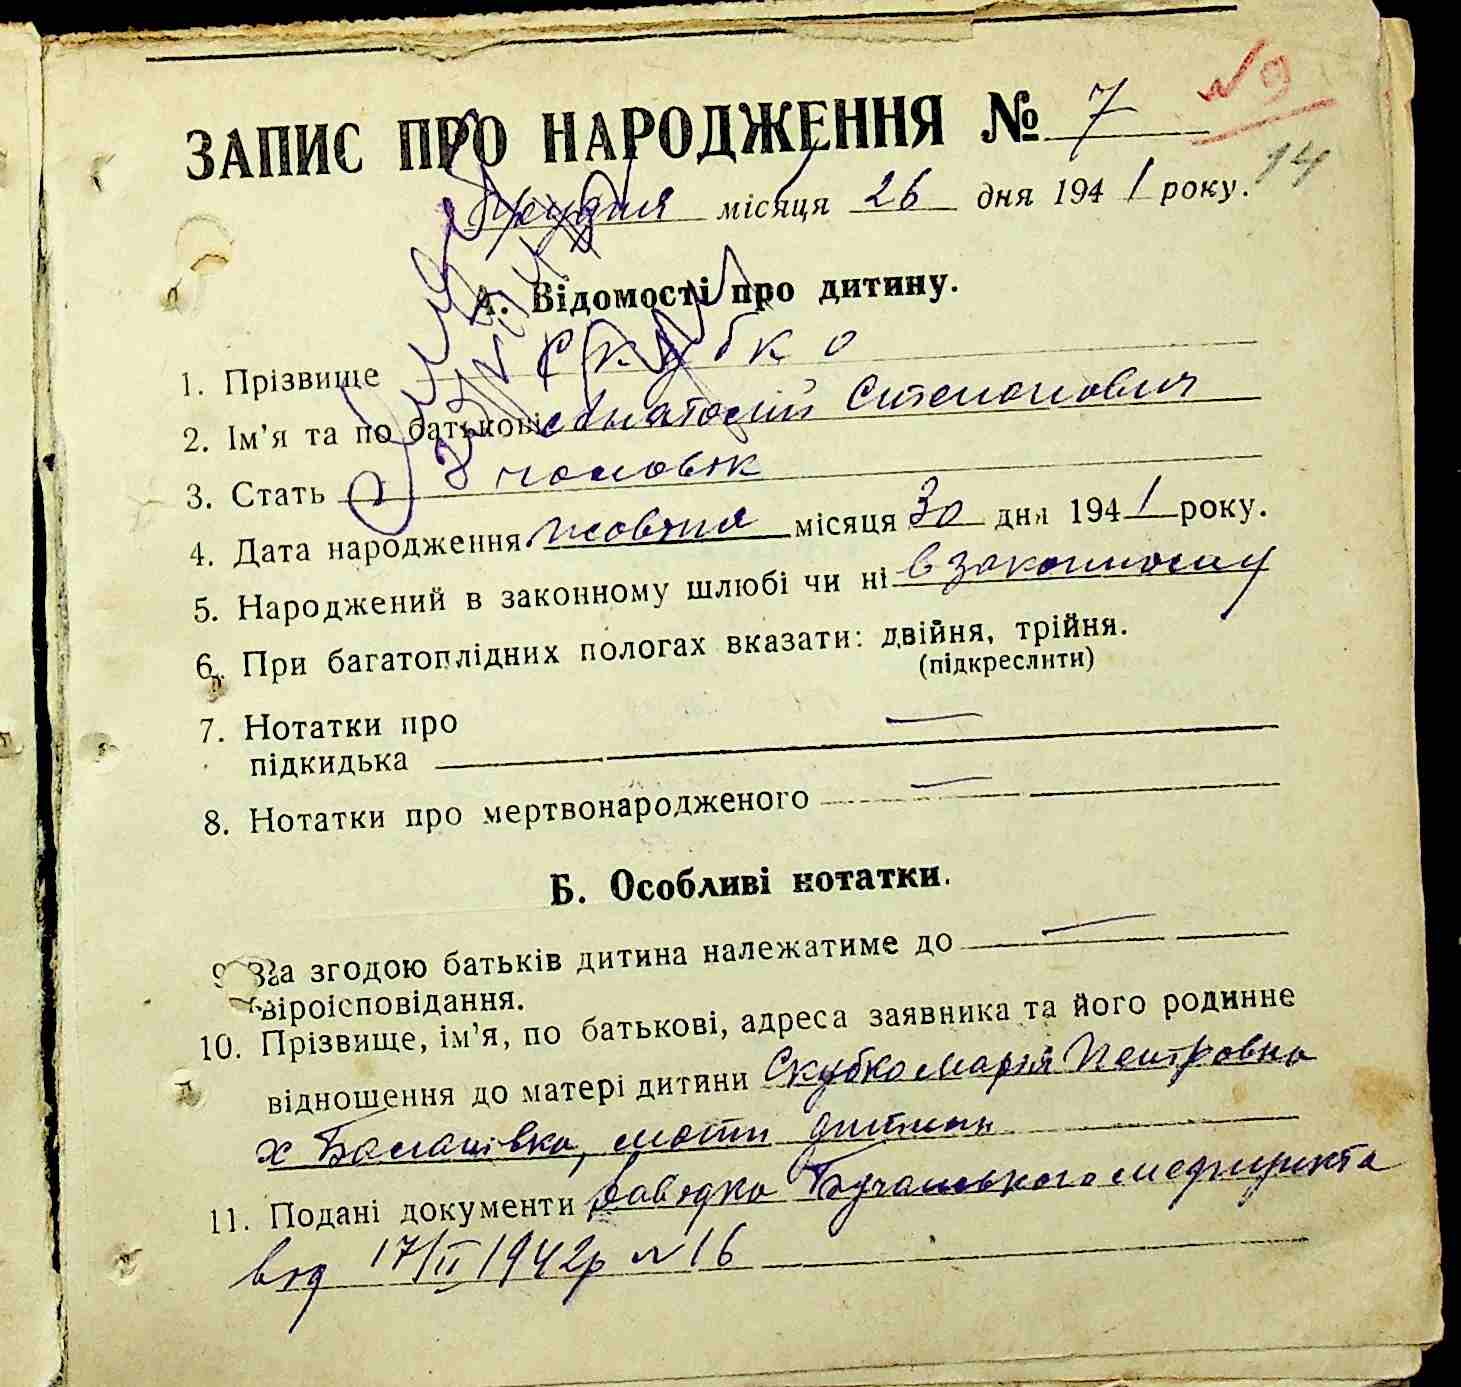 №9
ЗАПИС ПРО НАРОДЖЕННЯ № 7
14
Грудня місяця 26 дня 1941 року.
А. Відомості про дитину.
1. Прізвище Скубко
2. Ім'я та по батькові Анатолій Степанович
3. Стать чоловік
4. Дата народження жовтня місяця 30 дня 1941 року.
5. Народжений в законному шлюбі чи ні в законному
6. При багатоплідних пологах вказати: двійня, трійня.
(підкреслити)
7. Нотатки про
підкидька —
8. Нотатки про мертвонародженого —
Б. Особливі нотатки.
9. За згодою батьків дитина належатиме до —
віроісповідання.
10. Прізвище, ім'я, по батькові, адреса заявника та його родинне
відношення до матері дитини Скубко Марія Петровна
х Баланівка, мати дитини
11. Подані документи Довідка Бучанського медпункта
від 17/II 1942р №16